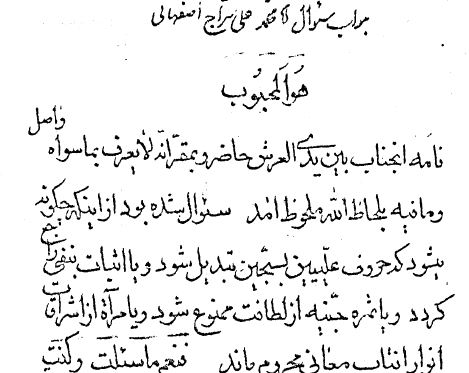 جواب سئوال محمد علی سراج اصفهانی
هو المحبوب
نامه انجناب بین یدی العرش حاضر و بمقر انه لا یعرف بما سواه واصل
و ما فیه بلحاظ الله ملحوظ امد سئوال شده بود از اینکه چگونه
میشود که حروف علیین بسجین تبدیل شود و یا اثبات بنفی راجع
کردد و یا ثمره جنیه از لطافت ممنوع شود و یا مرآة از اشراقات
انوار افتاب معانی محروم ماند فنعم ما سئلت و کنت